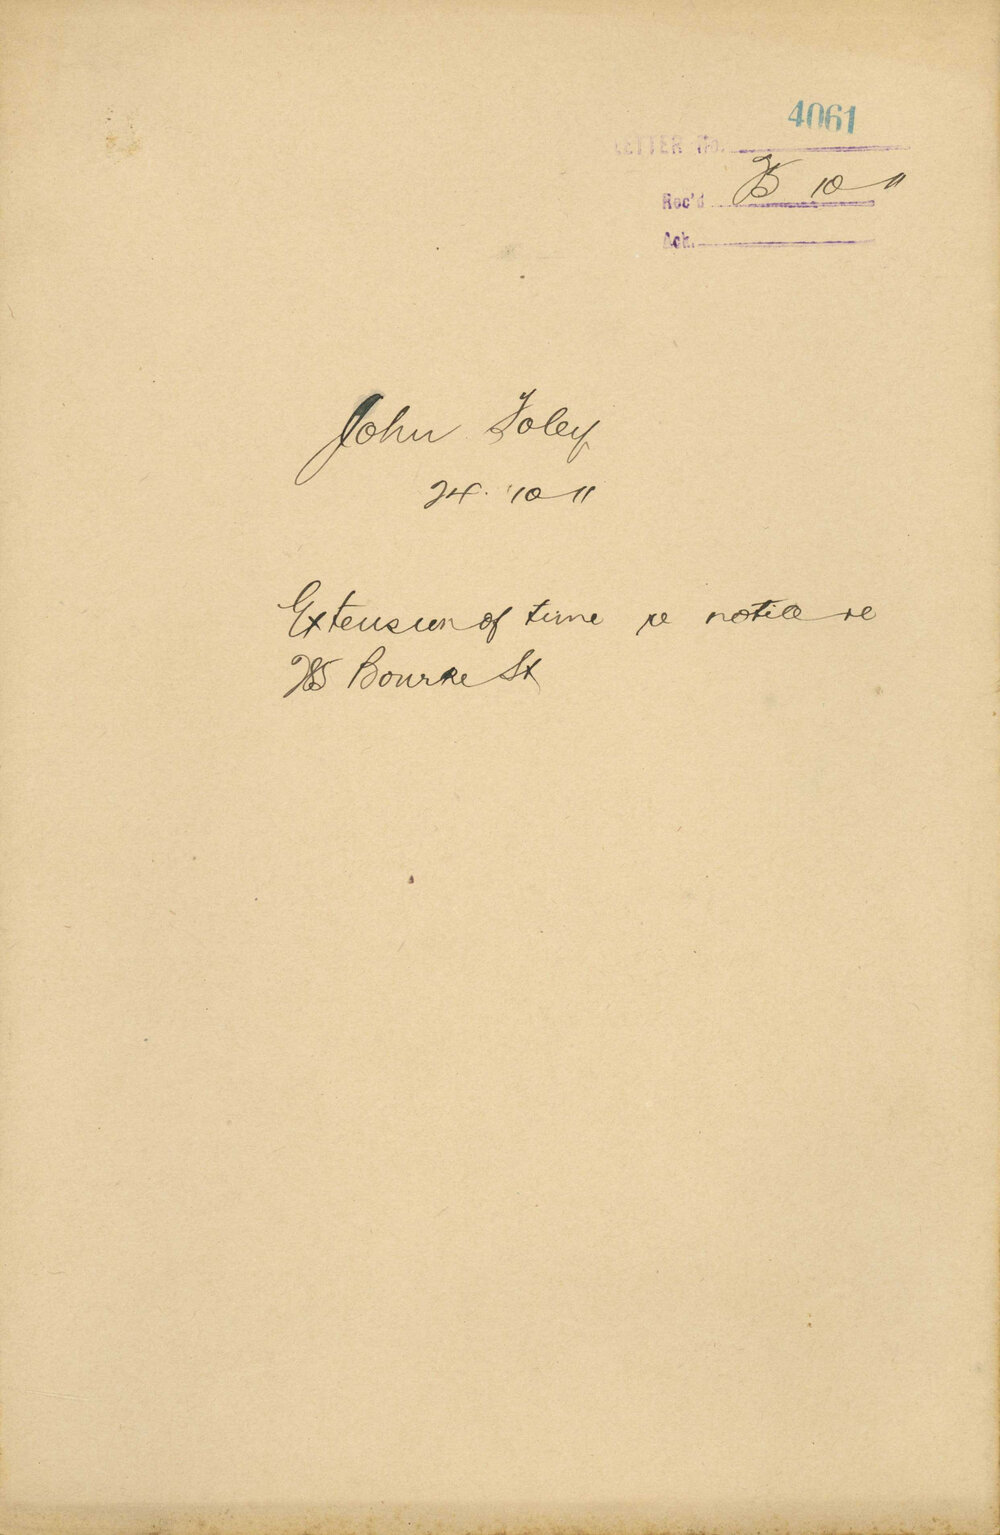 4061
LETTER No.
Rec'd 25 10 11
Ack.
John Foley
24. 10 11
Extension of time re notice re
Bourke St